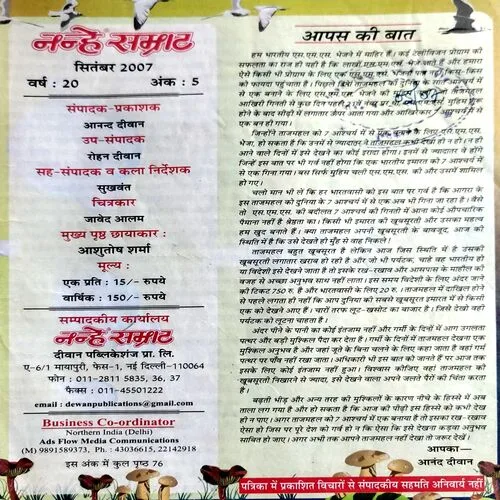 नन्हे सम्राट
सितंबर 2007
वर्ष : 20 अंक : 5
संपादक-प्रकाशक
आनन्द दीवान
उप-संपादक
रोहन दीवान
सह-संपादक व कला निर्देशक
सुखवंत
चित्रकार
जावेद आलम
मुख्य पृष्ठ छायाकार :
आशुतोष शर्मा
मूल्य :
एक प्रति : 15/- रुपये
वार्षिक : 150/- रुपये
सम्पादकीय कार्यालय
नन्हे सम्राट
दीवान पब्लिकेशंज प्रा. लि.
ए-6/1 मायापुरी, फेस-1, नई दिल्ली-110064
फोन : 011-2811 5835, 36, 37
फैक्स : 011-45501222
email : dewanpublications@gmail.com
Business Co-ordinator
Northern India (Delhi)
Ads Flow Media Communications
(M) 9891589373, Ph. : 43036615, 22142918
इस अंक में कुल पृष्ठ 76
आपस की बात
हम भारतीय एस.एम.एस. भेजने में माहिर हैं। कई टेलीविजन प्रोग्राम की
सफलता का राज ही यही है कि लाखों एस.एम.एस. भेजते हैं और हमारा
ऐसे किसी भी प्रोग्राम के लिए एक एस.एम.एस. भेजना पता नहीं किस-किस
को फायदा पहुंचाता है। पिछले दिनों ताजमहल को दुनिया के सात आश्चर्य में
से एक बनाने के लिए एस.एम.एस. भेजने की मुहिम ताजमहल
आखिरी गिनती से कुछ दिन पहली मुहिम शुरू
होने के बाद सीढ़ी में लगातार ऊपर आता गया और आखिरकार 7 आश्चर्य में से
एक बन ही गया।
जिन्होंने ताजमहल को 7 आश्चर्य में से एक बनाने के लिए एस.एम.एस.
भेजा, हो सकता है कि उनमें से ज्यादातर ने ताजमहल कभी देखा ही न हो। न ही
आने वाले दिनों में इसे देखने का कोई इरादा होगा। इनमें से ज्यादातर वे होंगे
जिन्हें इस बात पर भी गर्व नहीं होगा कि एक भारतीय इमारत को 7 आश्चर्य में
से एक गिना गया। बस सिर्फ मुहिम चली एस.एम.एस. की और उसमें शामिल
हो गए।
चलो मान भी लें कि हर भारतवासी को इस बात पर गर्व है कि आगरा के
इस ताजमहल को दुनिया के 7 आश्चर्य में से एक अब भी गिना जा रहा है। वैसे
तो एस.एम.एस. की बदौलत 7 आश्चर्य की गिनती में आना कोई औपचारिक
पैमाना नहीं है श्रेष्ठता का। किसी भी इमारत की खूबसूरती और उसका महत्व
हम खुद बनाते हैं। क्या ताजमहल अपनी खूबसूरती के बावजूद, आज की
स्थिति में है कि उसे देखते हो मुँह से वाह निकले!
ताजमहल बहुत खूबसूरत है लेकिन आज जिस स्थिति में है उसकी
खूबसूरती लगातार खराब हो रही है और जो भी पर्यटक, चाहे वह भारतीय हो
या विदेशी इसे देखने जाता है तो इसके रख-रखाव और आसपास के माहौल की
वजह से अच्छा अनुभव साथ नहीं लाता। इस समय विदेशी के लिए अंदर जाने
की टिकट 750 रु. है और भारतवासी के लिए 20 रु.। ताजमहल में दाखिल होने
से पहले लगता ही नहीं कि आप दुनिया की सबसे खूबसूरत इमारत में से किसी
एक को देखने आए हैं। चारों तरफ लूट-खसोट का बाजार है। जिसे देखो वही
पर्यटक को लूटना चाहता है।
अंदर पीने के पानी का कोई इंतजाम नहीं और गर्मी के दिनों में आग उगलता
पत्थर और बड़ी मुश्किल पैदा कर देता है। गर्मी के दिनों में ताजमहल देखना एक
मुश्किल अनुभव है और जहां जूते के बिना चलने के लिए कहा जाता है वहां गर्म
पत्थर पर पाँव नहीं रखा जाता। अधिकारी भी इस बात को जानते हैं पर आज तक
इसके लिए कोई इंतजाम नहीं हुआ। विश्वास कीजिए वहां ताजमहल की
खूबसूरती निखारने से ज्यादा, इसे देखने वाला अपने जलते पैरों की चिंता करता
है।
बढ़ती भीड़ और अन्य तरह की मुश्किलों के कारण नीचे के हिस्से में अब
ताला लग गया है और हो सकता है कि आज की पीढ़ी इस हिस्से को कभी देख
ही न पाए। अगर ताजमहल को 7 आश्चर्य में एक बनाया है तो इसका रख-रखाव
ऐसा हो जिस पर पूरे देश को गर्व हो न कि ऐसा कि देखने वाला कड़वा अनुभव
साबित हो जाए। अगर अभी तक आपने ताजमहल नहीं देखा तो जरूर देखें।
आपका-
आनंद दीवान
पत्रिका में प्रकाशित विचारों से संपादकीय सहमति अनिवार्य नहीं